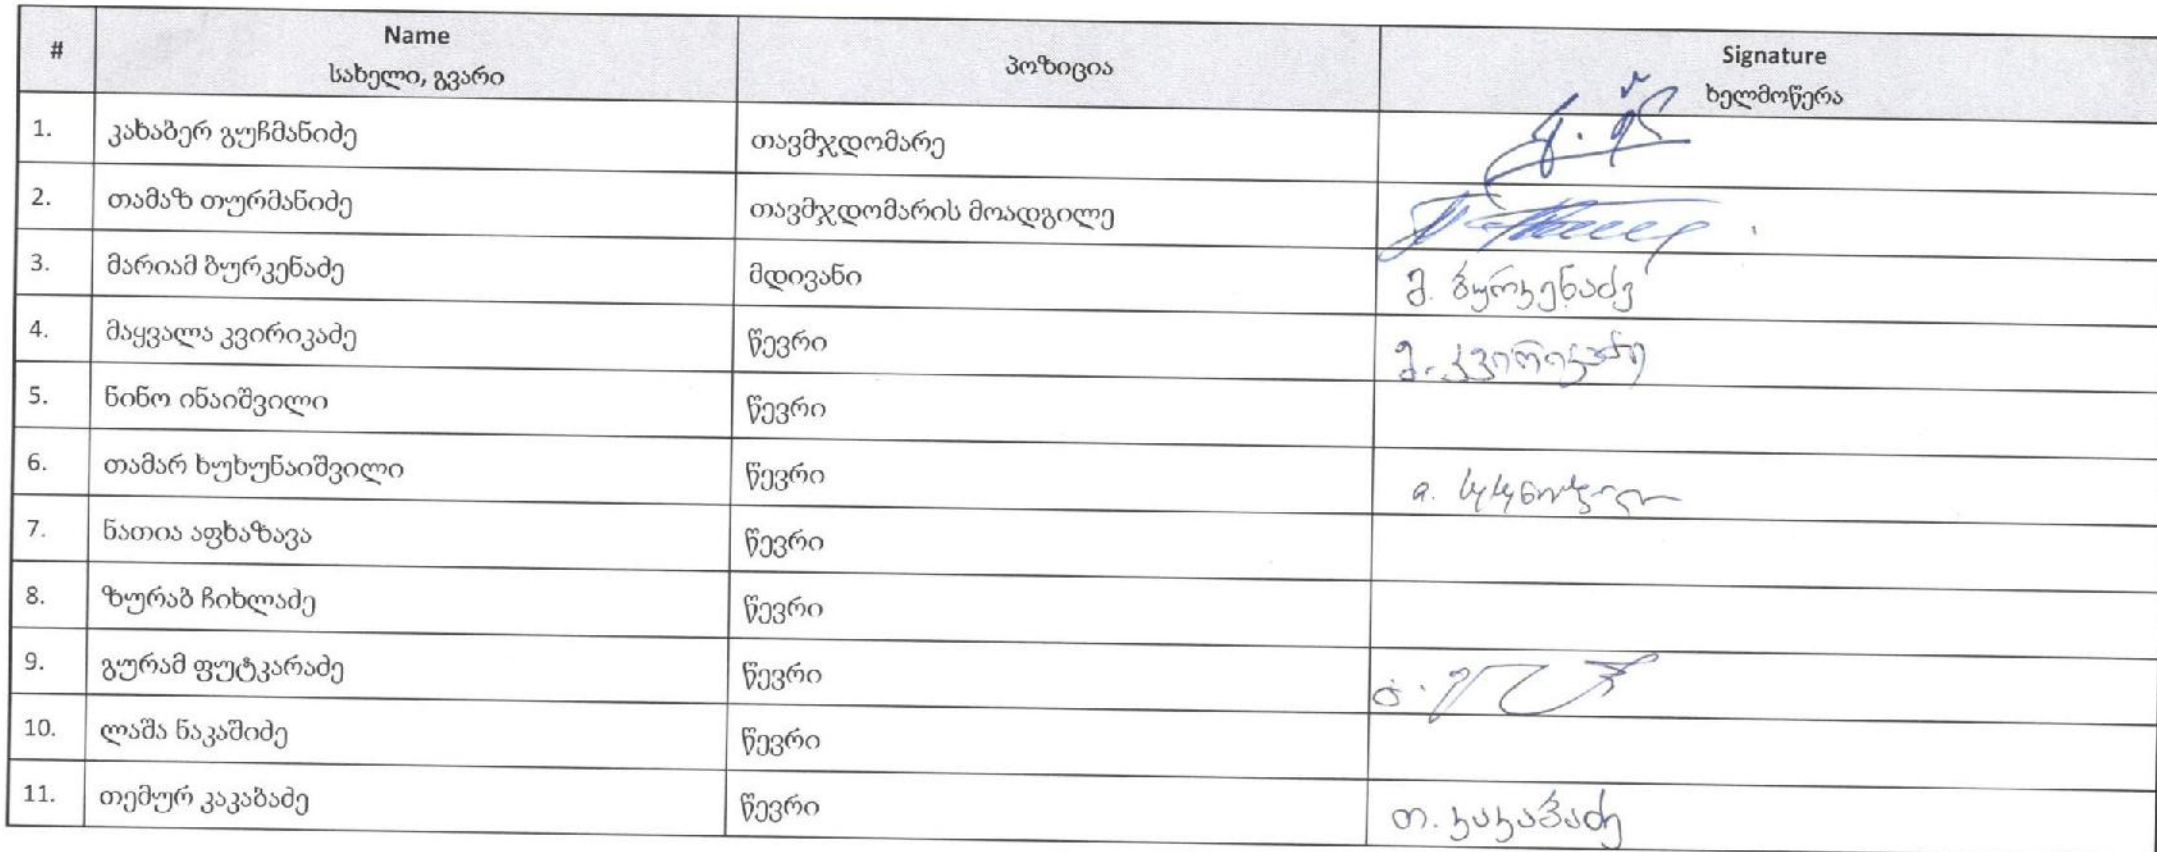 # Name პოზიცია Signature
სახელი, გვარი ხელმოწერა
1. კახაბერ გუჩმანიძე თავმჯდომარე
2. თამაზ თურმანიძე თავმჯდომარის მოადგილე
3. მარიამ ბურკენაძე მდივანი მ. ბურკენაძე
4. მაყვალა კვირიკაძე წევრი მ. კვირიკაძე
5. ნინო ინაიშვილი წევრი
6. თამარ ხუხუნაიშვილი წევრი
7. ნათია აფხაზავა წევრი
8. ზურაბ ჩიხლაძე წევრი
9. გურამ ფუტკარაძე წევრი
10. ლაშა ნაკაშიძე წევრი
11. თემურ კაკაბაძე წევრი თ. კაკაბაძე